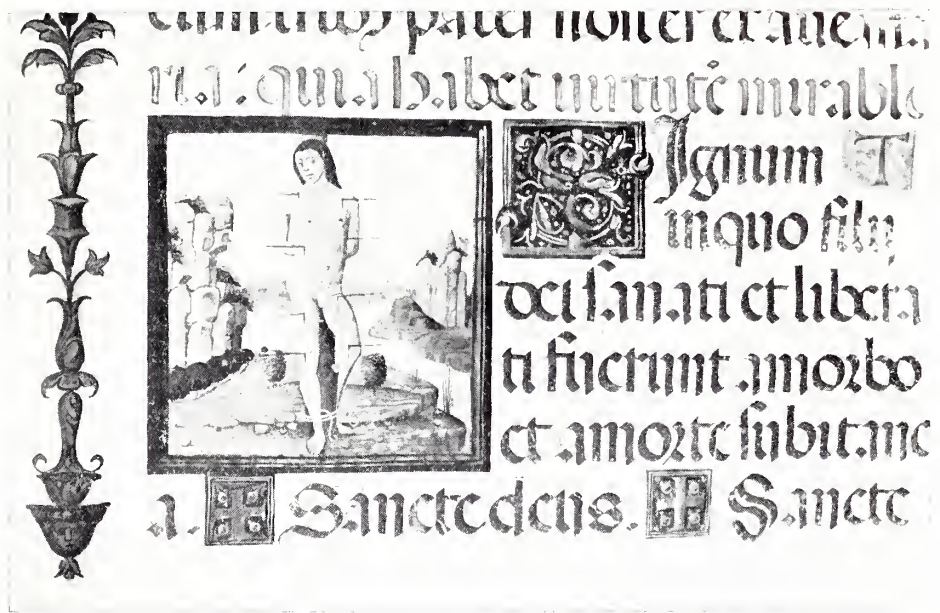 pater noster et ave ma
ria: quia habet virtutē mirabile
Signum T
in quo filii
dei sanati et libera
ti fuerunt a morbo
et a morte subitane
a. T Sancte deus. T Sancte